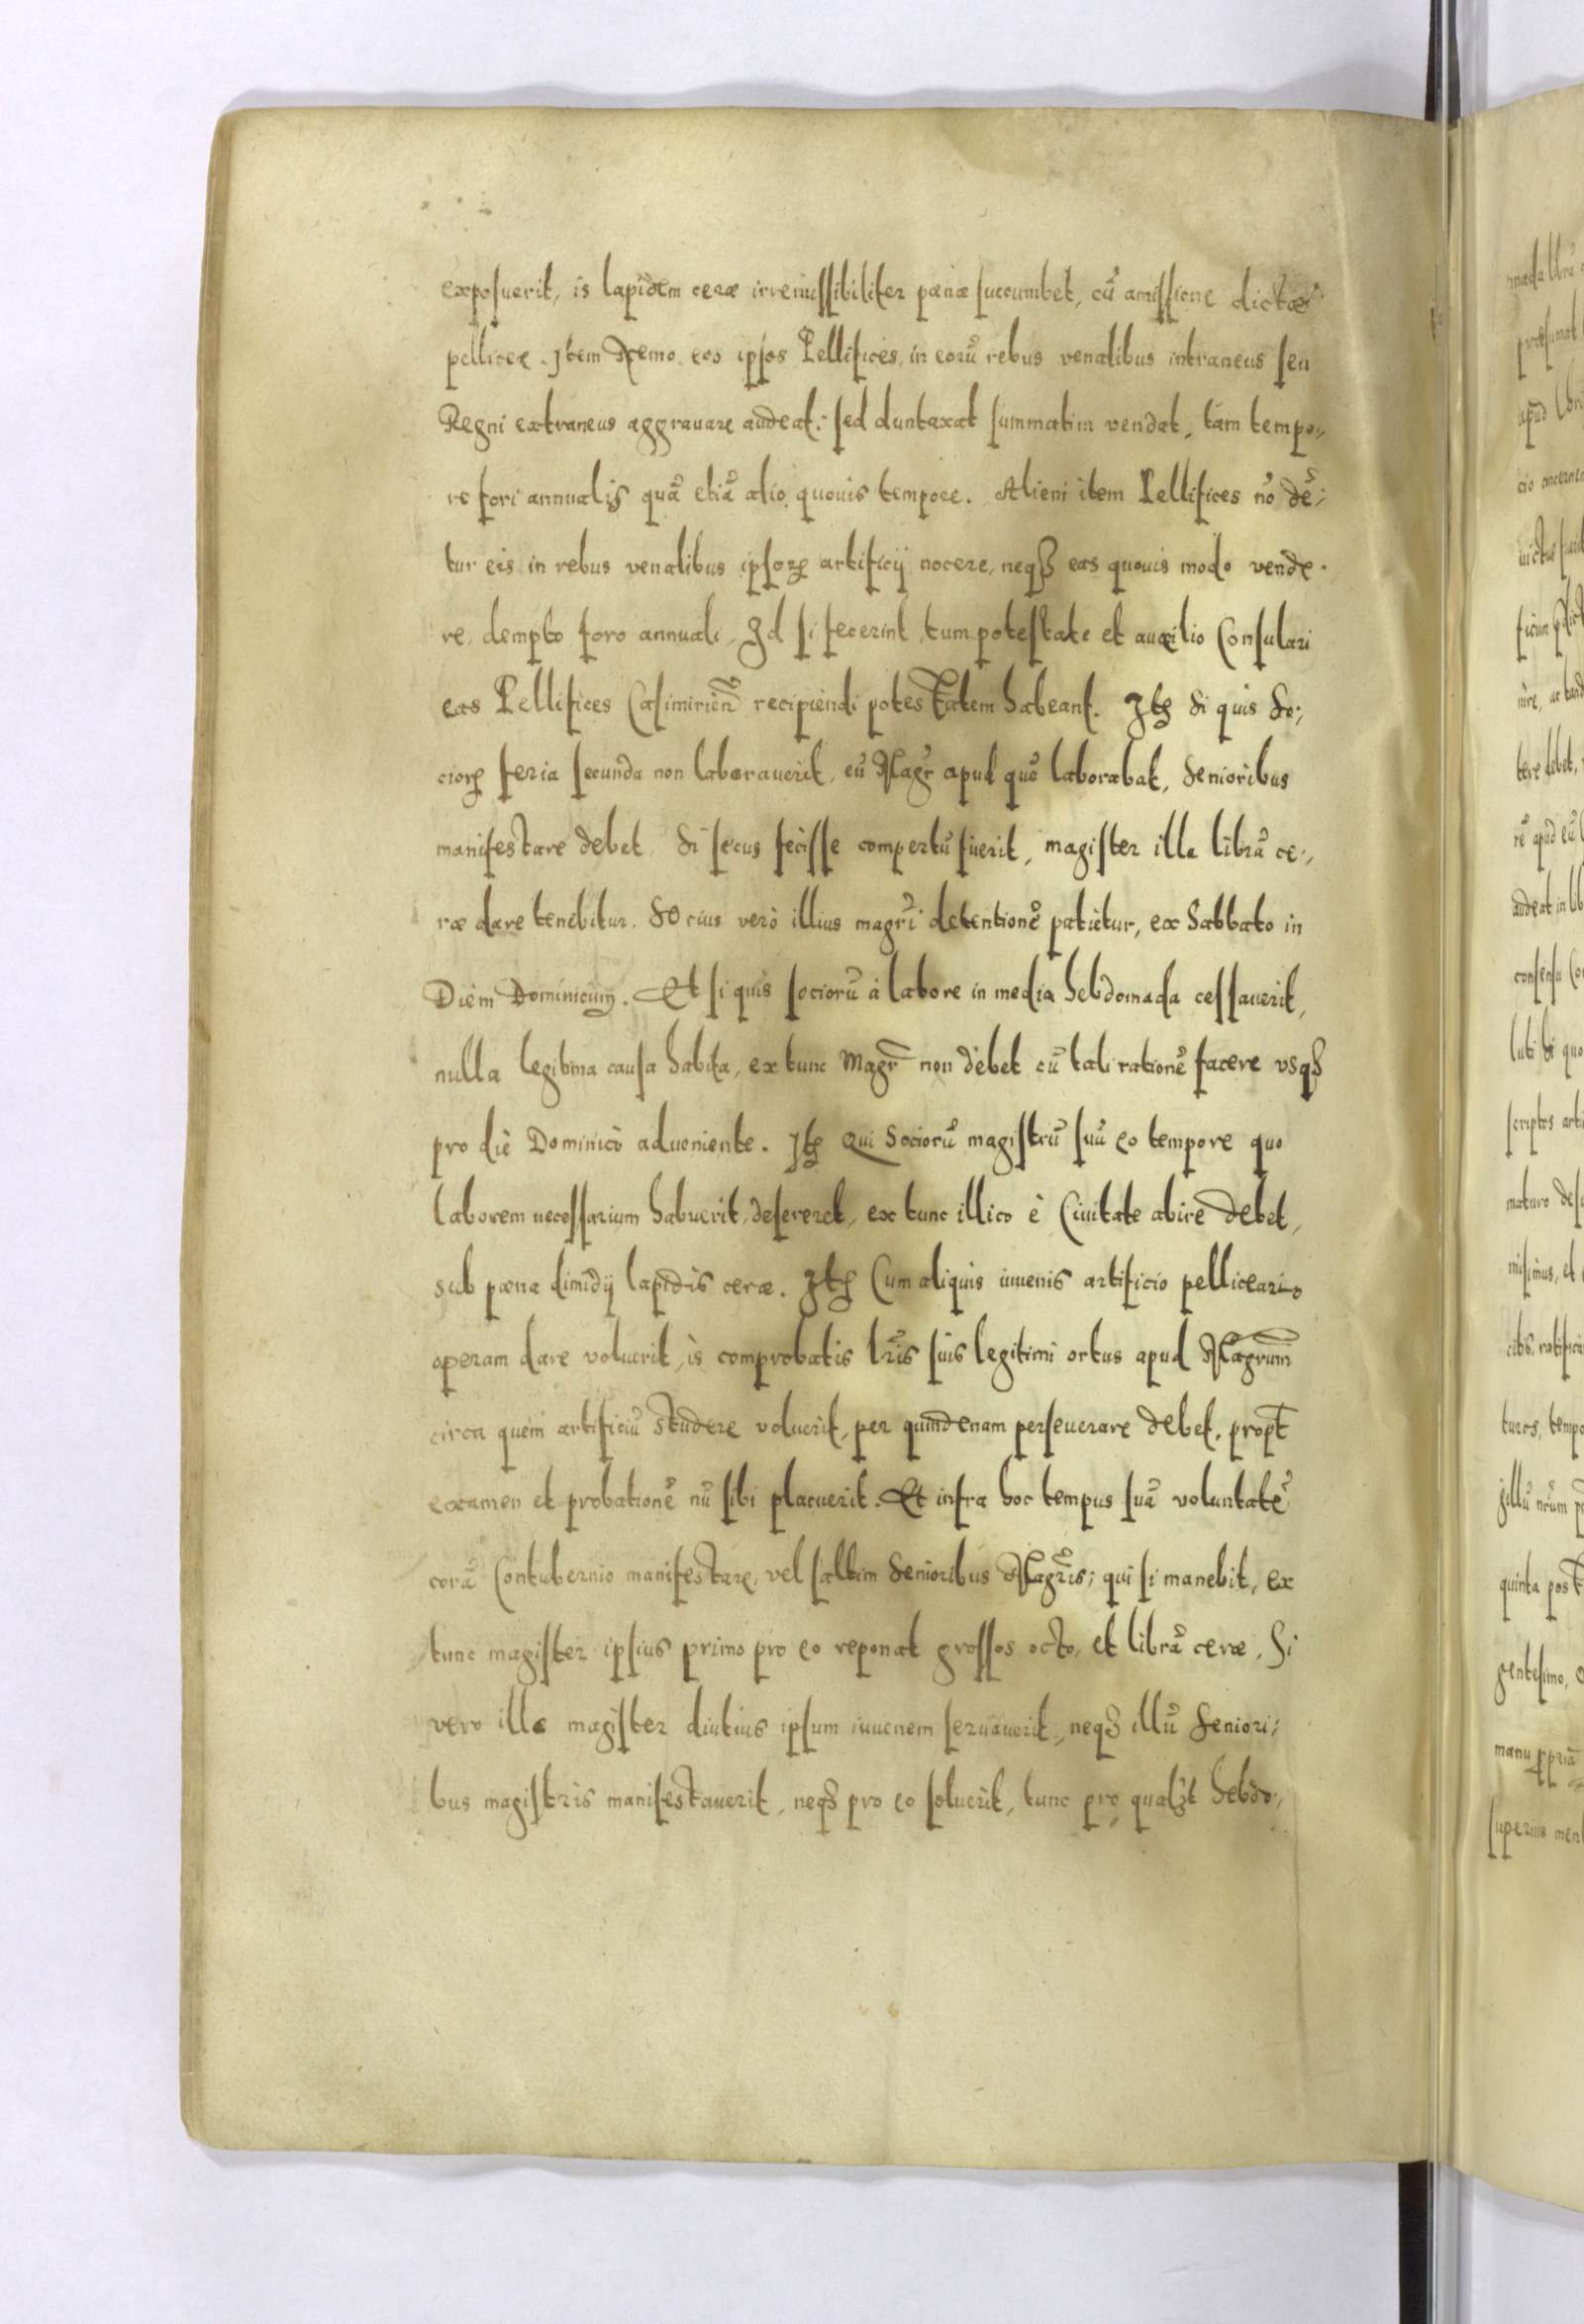 exposuerit, is lapidem ceræ irremissibiliter pœnæ succumbet, cū amissione dictæ
pelliceæ. Item Nemo eos ipsos Pellifices, in eorū rebus venalibus intraneus seu
Regni extraneus aggrauare audeat: sed duntaxat summatim vendat, tam tempo,,
re fori annualis quā etiā alio quouis tempore. Alieni item Pellifices nō dē;
tur eis in rebus venalibus ipsorꝝ artificij nocere, neqꝫ eas quouis modo vende.
re, dempto foro annuali, Id si fecerint, tum potestate et auxilio Consulari
eas Pellifices Casimirien̄ recipiendi potestatem habeant. Itꝫ Si quis So;
ciorꝝ feria secunda non laborauerit, eū Magr̄ apud quē laborabat, Senioribus
manifestare debet. Si secus fecisse compertū fuerit, magister ille librā ce;,
ræ dare tenebitur. Socius verò illius magr̄i detentionē patietur, ex Sabbato in
Diem Dominicum. Et si quis sociorū à labore in media hebdomada cessauerit,
nulla legitima causa habita, ex tunc Magr̄ non debet cū tali rationē facere vsqꝫ
pro die Dominicò adueniente. Itꝫ Qui Sociorū magistrū suū eo tempore quo
laborem necessarium habuerit, desereret, ex tunc illico è Ciuitate abire debet,
sub pœna dimidij lapidis ceræ. Itꝫ Cum aliquis iuuenis artificio pelliceario
operam dare voluerit, is comprobatis lr̄is suis legitimi ortus apud Magr̄um
circa quem artificiū studere voluerit, per quindenam perseuerare debet, propt̄
examen et probationē nū sibi placuerit. Et infra hoc tempus suā voluntatē
corā Contubernio manifestare, vel saltim Senioribus Magr̄is; qui si manebit, ex
tunc magister ipsius primo pro eo reponat grossos octo, et librā ceræ, Si
vero ille magister diutius ipsum iuuenem seruauerit, neqꝫ illū Seniori;
bus magistris manifestauerit, neqꝫ pro eo soluerit, tunc pro qualꝫt hebdo;,